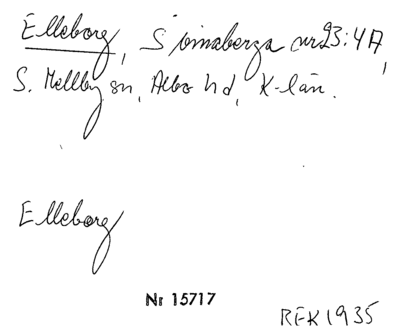 Elleborg, S imaberga nr 23:4A,
S. Mellby sn, Albo hd, K-län.
Elleborg
Nr 15717
REK 1935